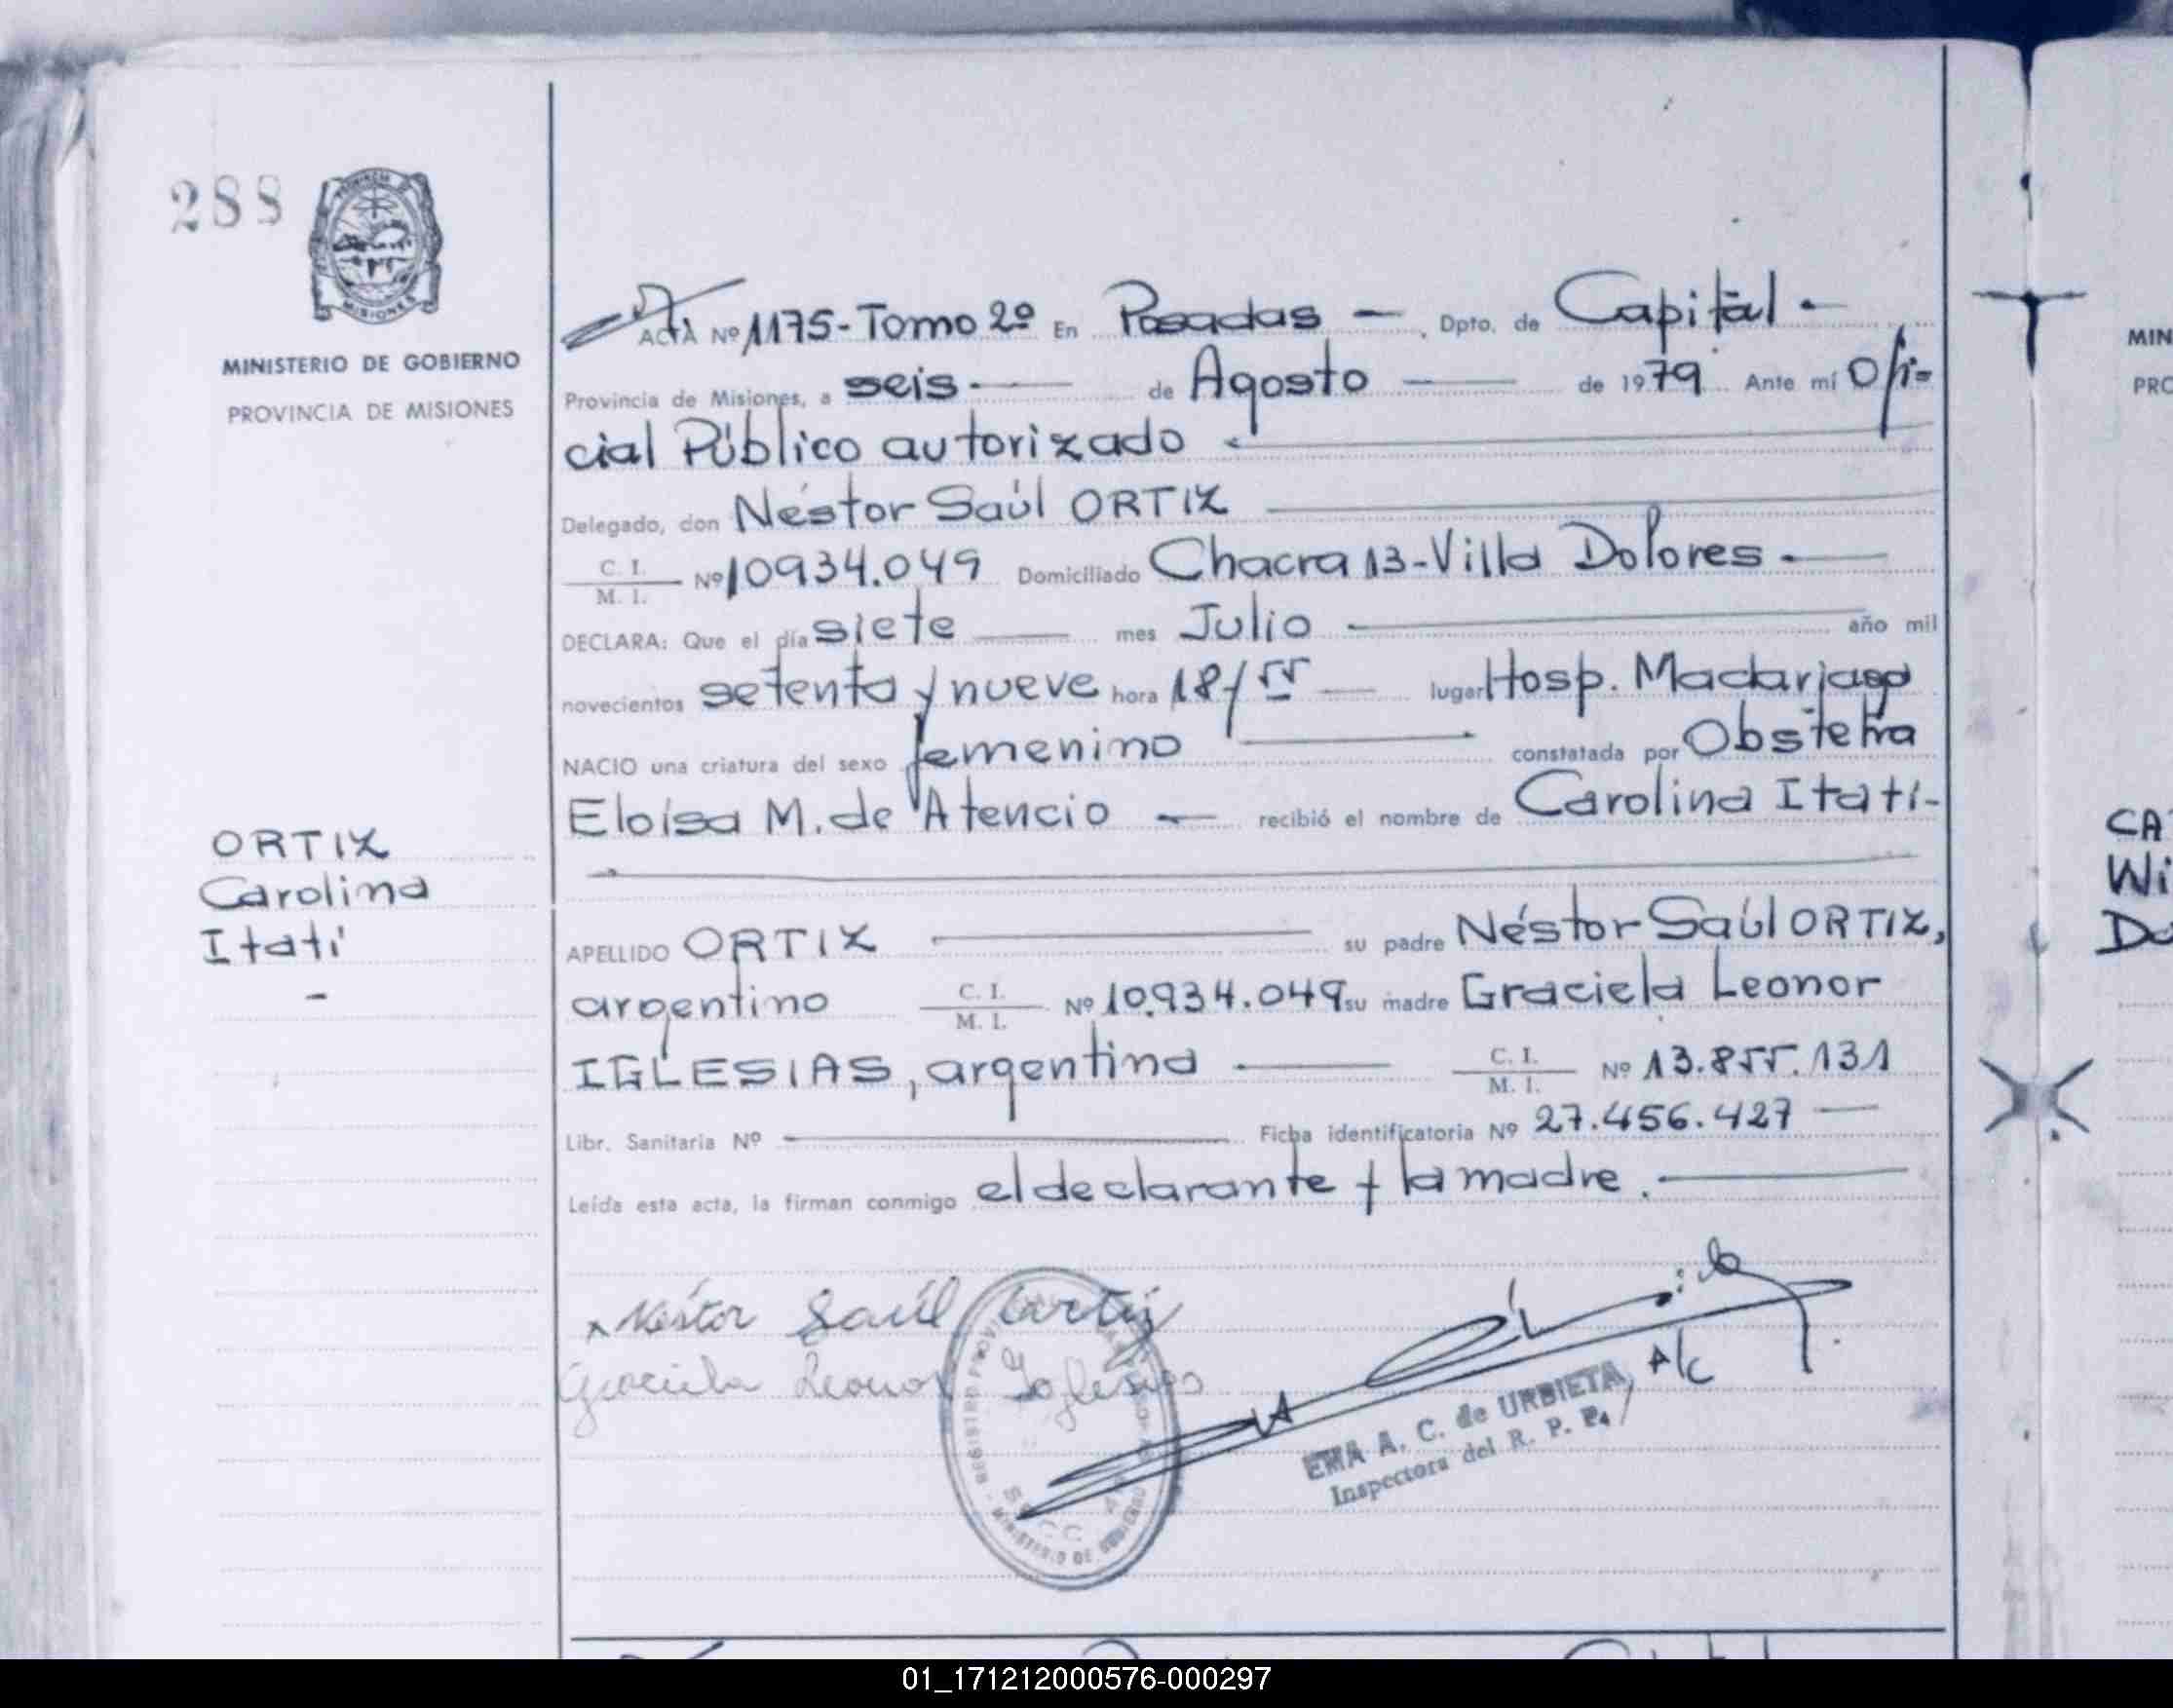 288
MISIONES
MINISTERIO DE GOBIERNO
PROVINCIA DE MISIONES
ACTA Nº 1175-Tomo 2º En Posadas — , Dpto. de Capital -
Provincia de Misiones, a seis — de Agosto — de 1979 Ante mí Ofi=
cial Público autorizado
Delegado, don Néstor Saúl ORTIZ
C. I.
M. I. Nº 10934.049 Domiciliado Chacra 13-Villa Dolores -
DECLARA: Que el día siete — mes Julio — año mil
novecientos setenta y nueve hora 18/55 — lugar Hosp. Madariaga
NACIO una criatura del sexo femenino — constatada por Obstetra
Eloísa M. de Atencio — recibió el nombre de Carolina Itatí-
ORTIZ
Carolina
Itatí
-
APELLIDO ORTIZ — su padre Néstor Saúl ORTIZ,
argentino C. I. M. I. Nº 10.934.049 su madre Graciela Leonor
IGLESIAS, argentina — C. I. M. I. Nº 13.855.131
Libr. Sanitaria Nº — Ficha identificatoria Nº 27.456.427 —
Leída esta acta, la firman conmigo el declarante y la madre. —
x Néstor Saúl Ortiz
Graciela Leonor Iglesias
A/C
EMA A. C. de URBIETA
Inspectora del R. P. P.
MINISTERIO DE GOBIERNO
MIN
PRO
CA
Wi
Do
01_171212000576-000297